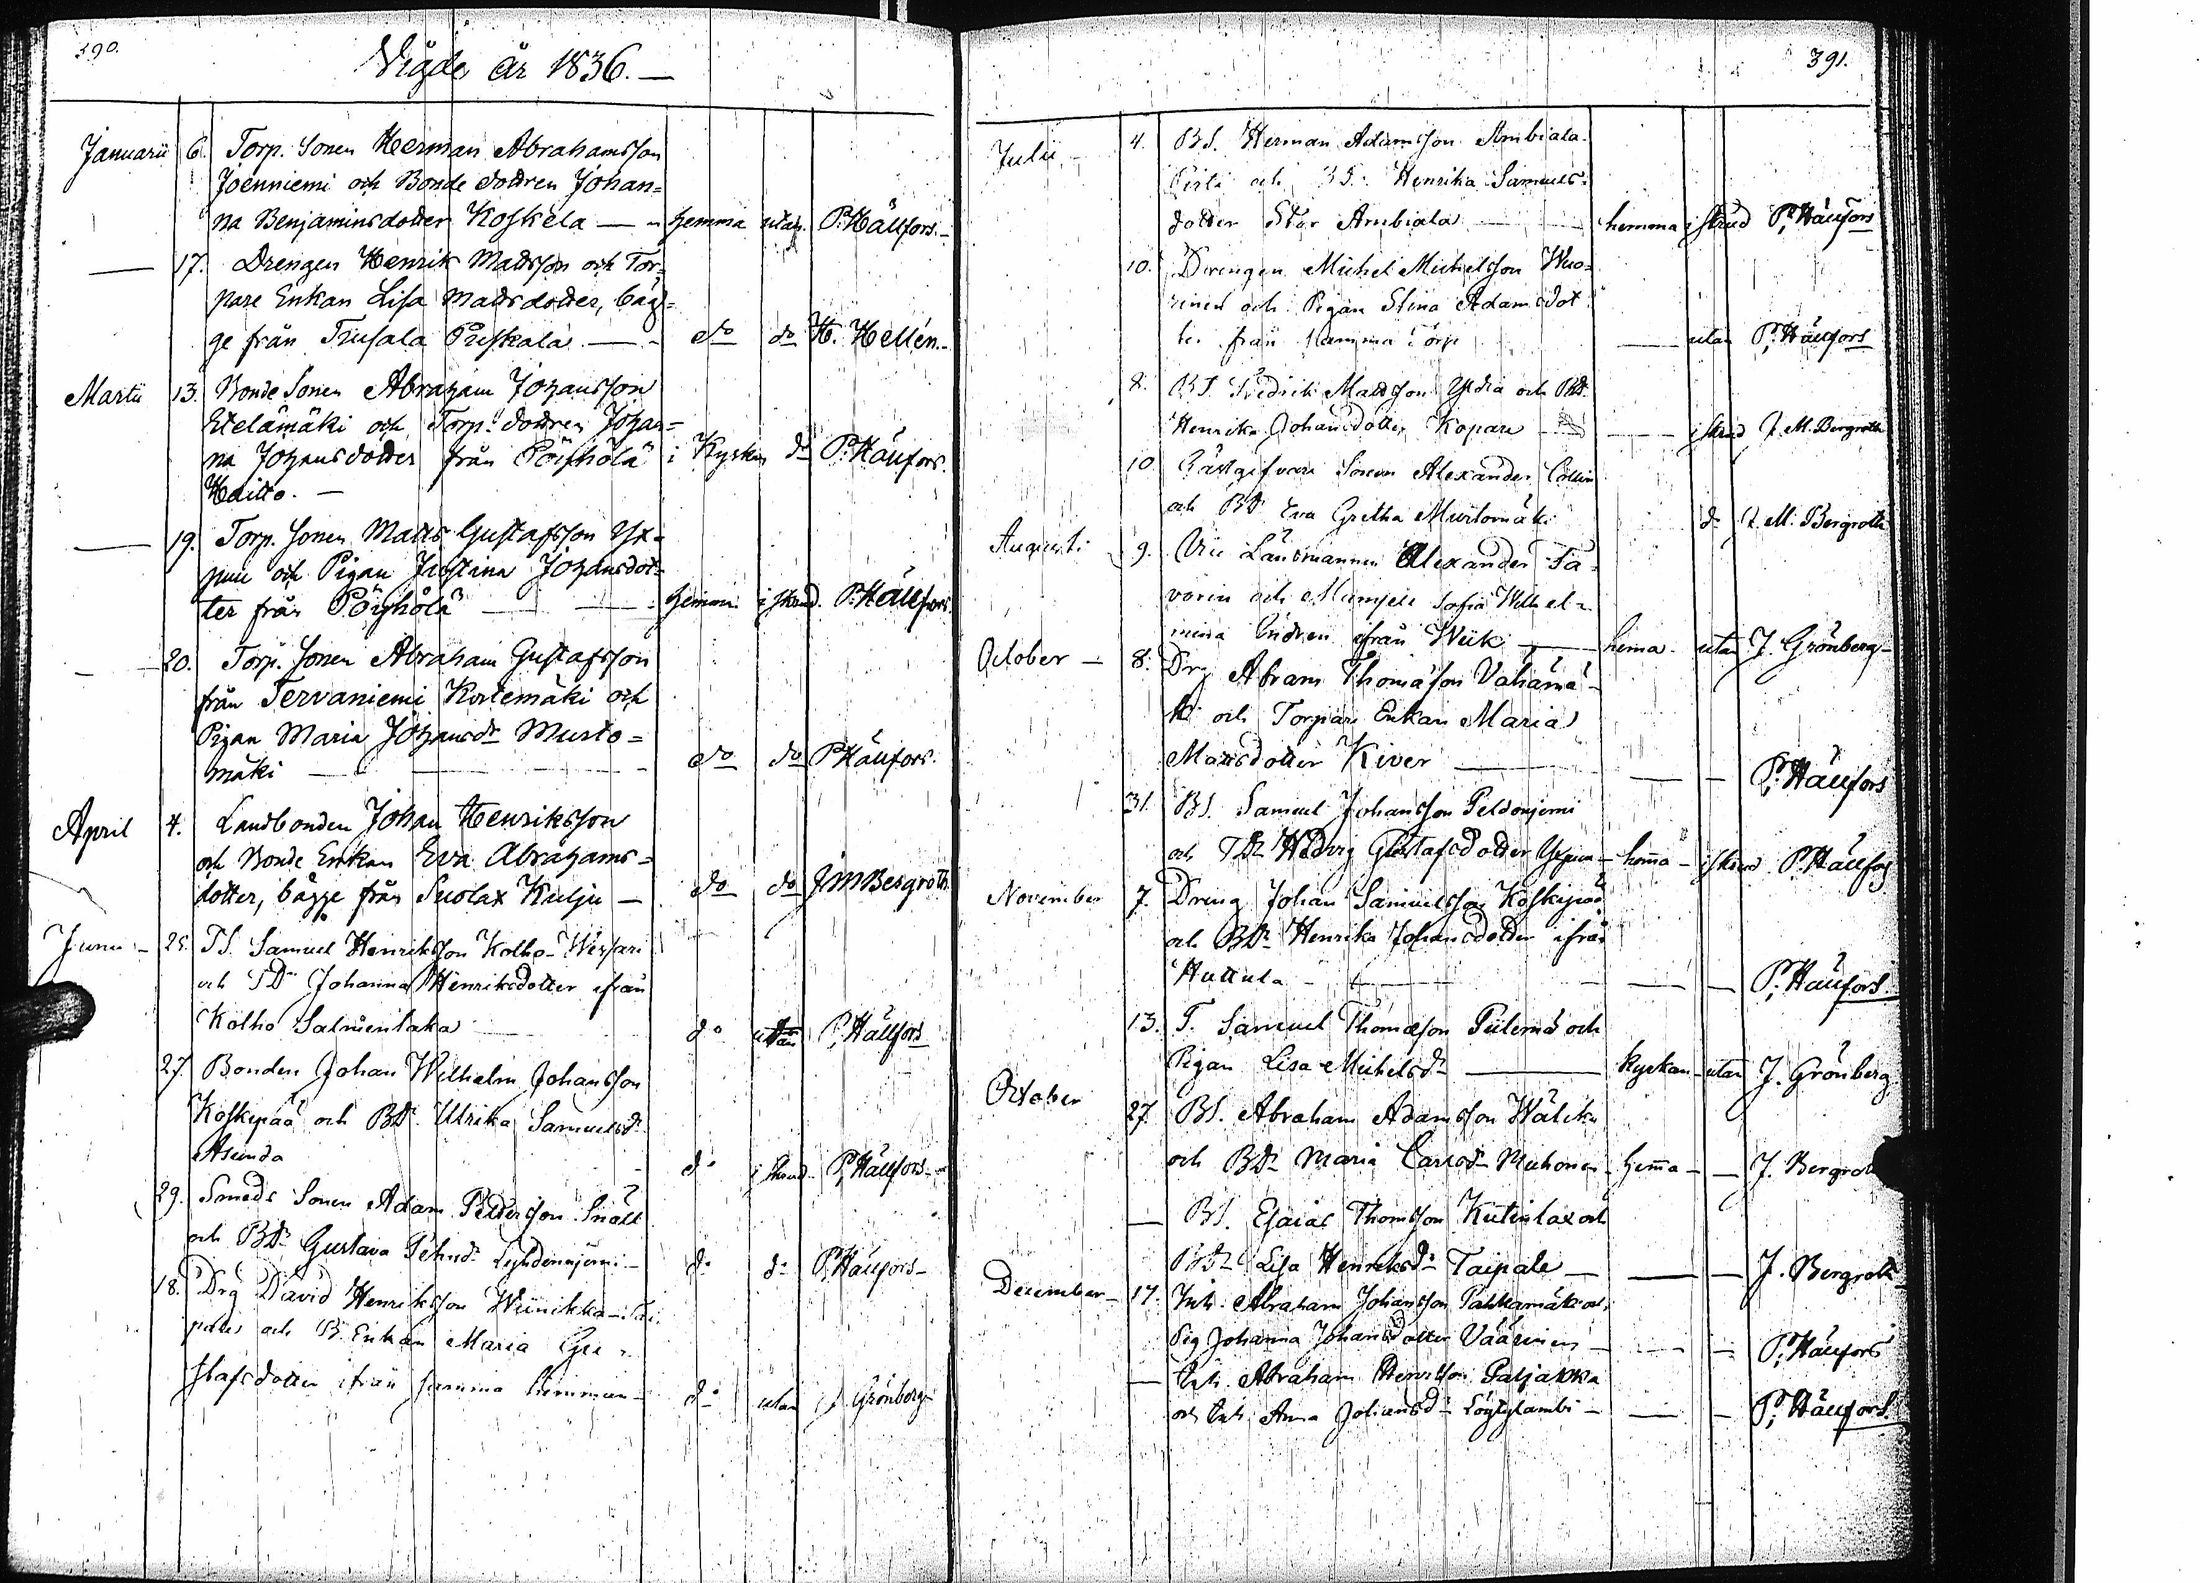 390.
Vigde år 1836. —
Januarii 6. Torp. Sonen Herman Abrahamsson
Joenniemi och Bonde dottren Johan=
na Benjaminsdotter Koskela — hemma utan P. Hällfors. —
— 17. Drengen Henrik Mattsson och Tor=
pare Enkan Lisa Mattsdotter, båg=
ge från Trusala Puskala — do do H. Hellén. —
Martii 13. Bonde Sonen Abraham Johansson
Etelämäki och Torp. dottren Johan=
na Johansdotter från Pöyhölä i Kyrkan do P. Hällfors.
Haitto. —
— 19. Torp. Sonen Matts Gustafsson
och Pigan Justina Johansdot=
ter från Pöyhölä — hemma i skrud. P. Hällfors.
— 20. Torp. Sonen Abraham Gustafsson
från Tervaniemi Kortemäki och
Pigan Maria Johansdr Musto=
mäki — do do P. Hällfors.
April 4. Landbonden Johan Henriksson
och Bonde Enkan Eva Abrahams=
dotter, bägge från Suolax Kulju — do do J M Bergroth
Junii — 25. TS. Samuel Henriksson Kolho
och TDr Johanna Henriksdotter ifrån
Kolho Salmentaka do utan P. Hällfors
27. Bonden Johan Wilhelm Johansson
Koskipää och BDr Ulrika Samuelsdr
Asunda do i skrud. P. Hällfors. —
29. Smeds Sonen Adam Pettersson Snäll
och BDr Gustava do do P. Hällfors —
18. Drg David Henriksson
och B. Enkan Maria Gu=
stafsdotter ifrån samma hemman — do utan J Grönberg
391.
Julii — 4. BS. Herman Adamsson Ambiala
och BD. Henrika Samuels=
dotter Stor Ambiala — hemma i skrud P. Hällfors
10. Drengen Michel Michelsson Wuo=
rinen och Pigan Stina Adamsdot=
ter från samma Torp — utan P. Hällfors
8. BS. Fredrik Mattsson Yldiä och BD.
Henrika Johansdotter Kopare — i skrud J. M. Bergroth
10 Gästgifvare Sonen Alexander Collin
och BDr Eva Gretha Murtomäki do J. M. Bergroth
Augusti 9. Vice Länsmannen Alexander Fa=
vorin och Mamsell Sofia Wilhel=
mina ifrån Wiik — hema utan J. Grönberg —
October — 8. Drg Abram Thomasson Vahamä=
ki och Torpare Enkan Maria
Mattsdotter Kiver — — — P. Hällfors
31. BS. Samuel Johansson Peldoniemi
och TDr Hedvig Gustafsdotter — hema — i skrud P. Hällfors
November 7. Dreng Johan Samuelsson Koskipää
och BDr Henrika Johansdotter ifrån
Huttula — — — P. Hällfors.
13. T. Samuel Thomasson och
Pigan Lisa Michelsdr — Kyrkan — utan J. Grönberg
October 27. BS. Abraham Adamsson
och BDr Maria Carlsdr Muhonen — hema — — J. Bergroth
— BS. Esaias Thomsson Kutinlax och
BDr Lisa Henriksdr Taipale — — — J. Bergroth
December — 17. Inh. Abraham Johansson och
Pig Johanna Johansdotter Väärinen — — — P. Hällfors
— Inh. Abraham Henriksson Paljakka
och Inh. Anna Johansdr — — — P. Hällfors.